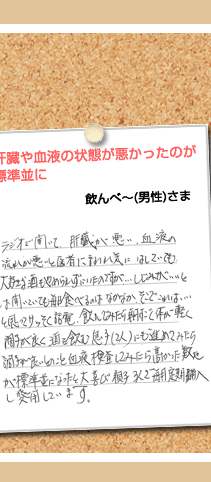 肝臓や血液の状態が悪かったのが
標準並に
飲んべ～(男性)さま
ラジオで聞いて、肝臓が悪い、血液の
流れが悪いと医者に言われ気にはしていても
大好きな酒もやめられずにいたのですが…しじみがいいと
は聞いていても毎日食べるのはなかなか、そこでこれは…
と思ってサッそく電話、飲んでみたら朝おこる体が軽く
調子が良く酒を飲む息子(2人)にも進めてみたら
調子が良いとのこと血液検査してみたら高かった数値
が標準並になり大喜び親子3人で毎月定期購入
し愛用しています。